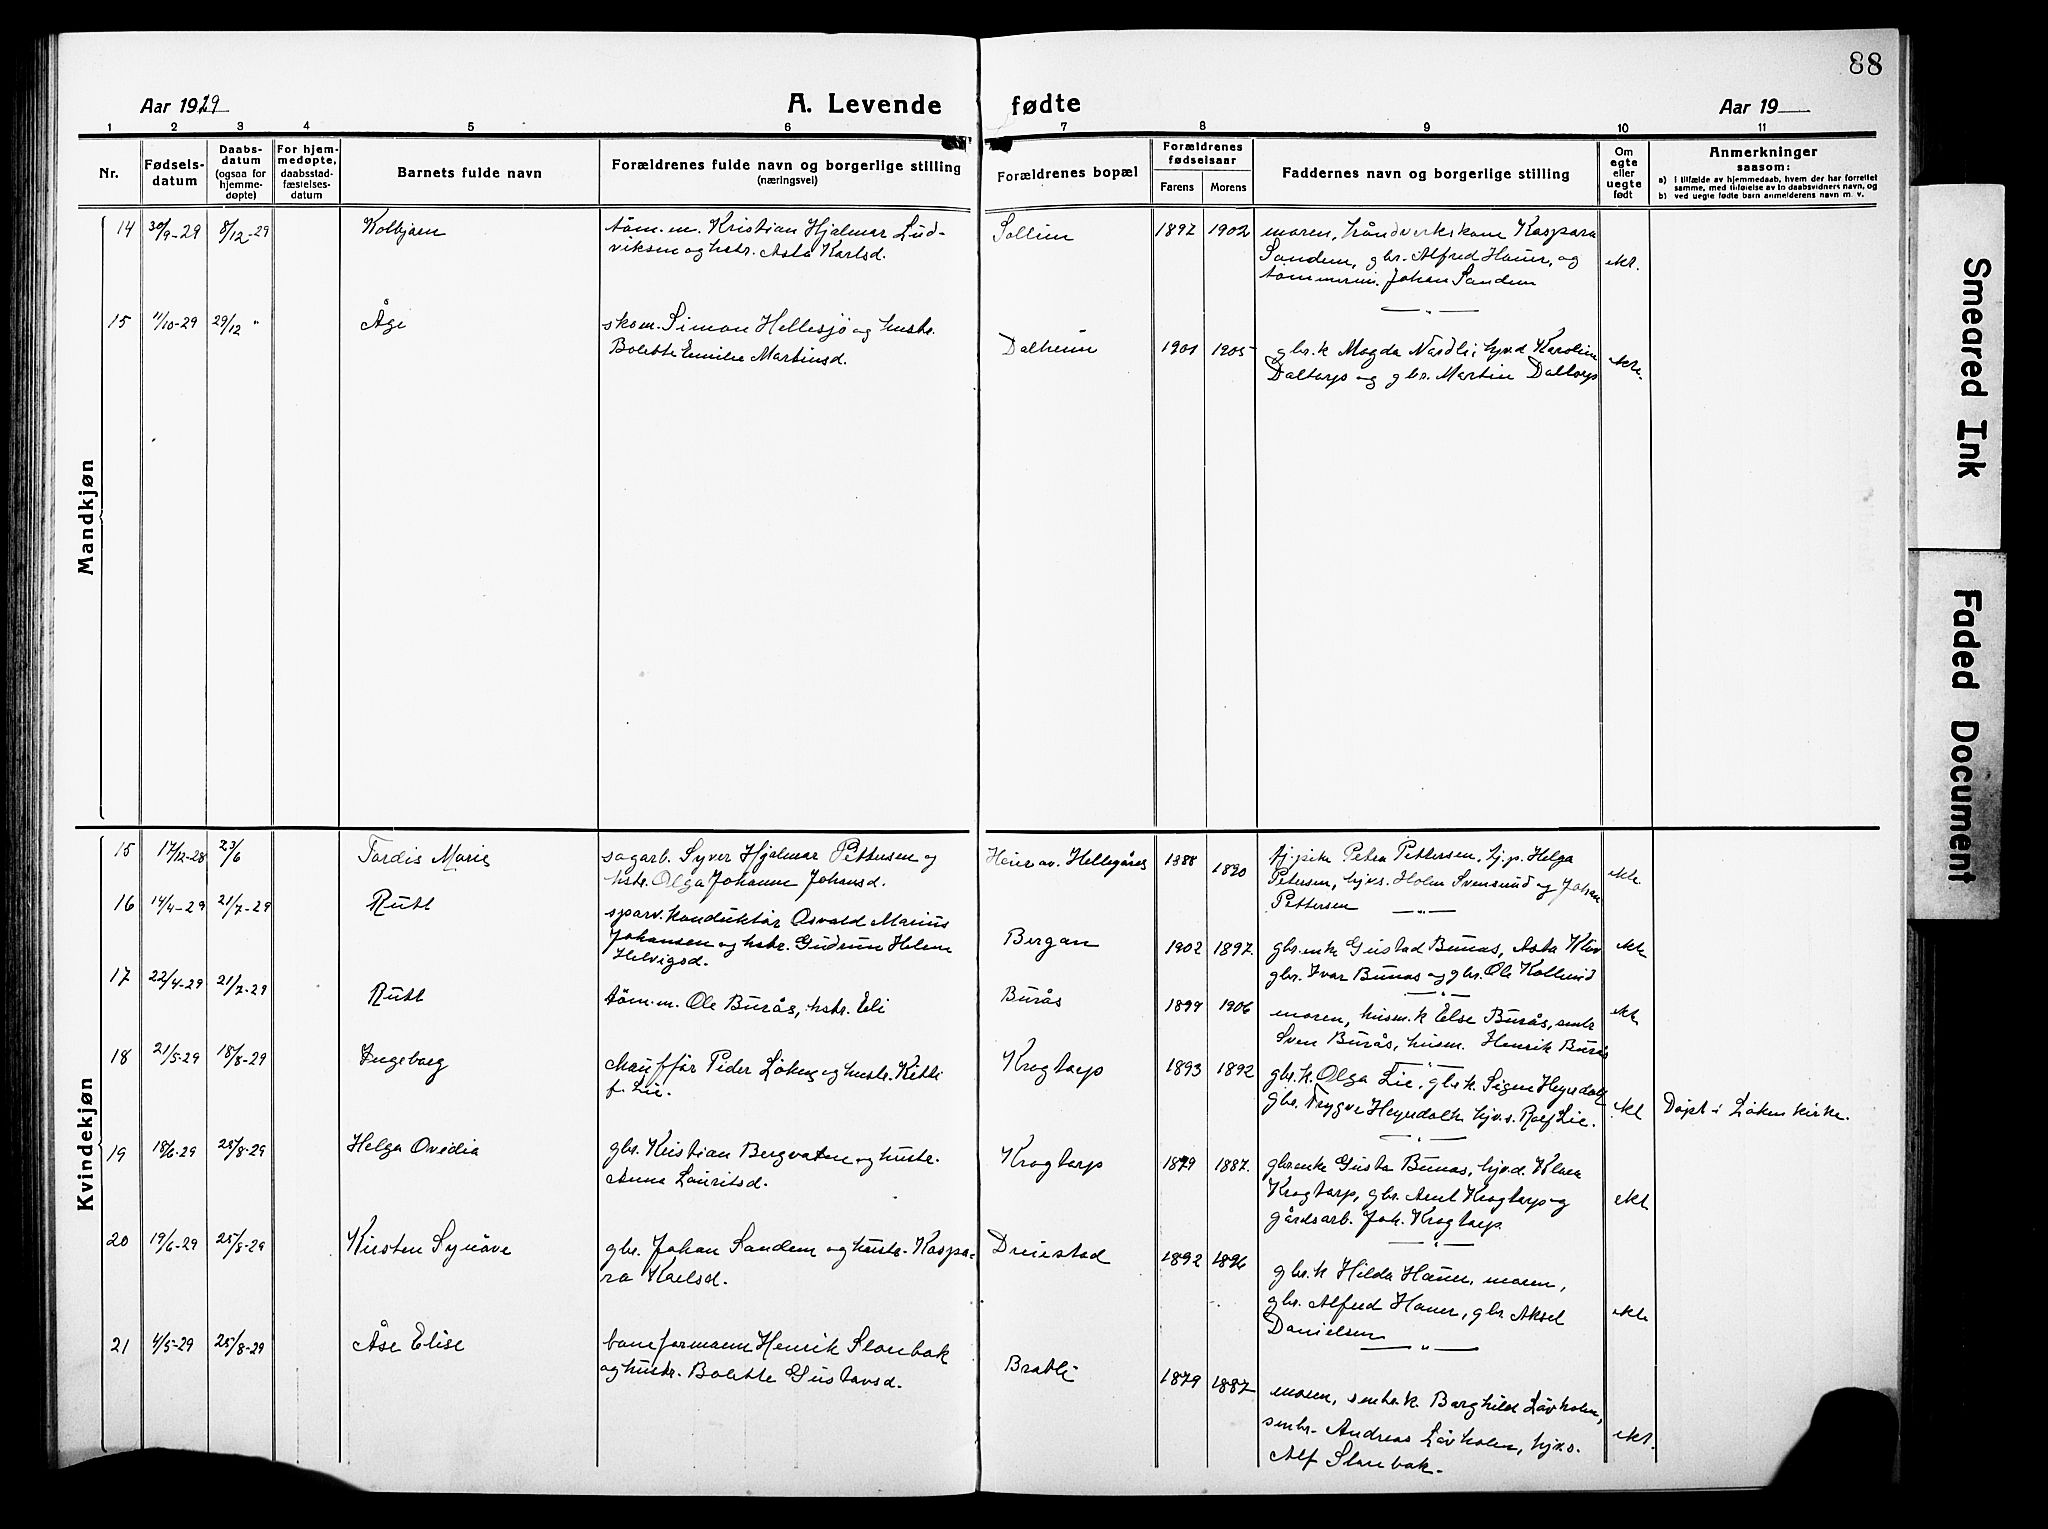 88
Aar 1929
A. Levende fødte
Aar 19
1 2 3 4 5 6 7 8 9 10 11
Nr.
Fødsels-
datum
Daabs-
datum
(ogsaa for
hjemme-
døpte)
For hjem-
medøpte,
daabsstad-
fæstelses-
datum
Barnets fulde navn
Forældrenes fulde navn og borgerlige stilling
(næringsvei)
Forældrenes bopæl
Forældrenes
fødselsaar
Farens
Morens
Faddernes navn og borgerlige stilling
Om
egte
eller
uegte
født
Anmerkninger
saasom:
a) i tilfælde av hjemmedaab, hvem der har forrettet
samme, med tilføielse av to daabsvidners navn, og
b) ved uegte fødte barn anmelderens navn m. v.
Mandkjøn
14 30/9-29 8/12-29 Kolbjørn
tøm.m. Kristian Hjalmar Lud-
viksen og hstr. Asta Karlsd.
1897 1902
moren, håndverkskone Kaspara
Sandem, gbr. Alfred Hauer, og
tømmerm. Johan Sandem
ekt.
15 11/10-29 29/12 " Åge
skom. Simon Hellesjø og hustr.
Bolette Emilie Martinsd.
Dalheim 1901 1905
gbr.k Magda Nordli, hjv.d Karoline
Daltorp og gbr. Martin Daltorp
ekte.
Kvindekjøn
15 17/12-28 23/6 Tordis Marie
sagarb. Syver Hjalmar Pettersen og
hstr. Olga Johanne Johansd.
1888 1890
tj.pike Petra Pettersen, tj.p. Helga
Petersen, hjvs. Holm Svensrud og Johan
Pettersen
ekte
16 14/4-29 21/7-29 Rutt
sporv.konduktør Osvald Marius
Johansen og hstr. Gudrun Helene
Helvigsd.
Bergan 1902 1897.
gbr.enke Gustad Bunas, Asta
gbr. Ivar Bunas og gbr. Ole Kollerud
ekte
17 22/4-29 21/7-29 Rutt
tøm.m. Ole Burås, hstr. Eli
Burås 1899 1906
moren, husm.k Else Burås, smbr
Sven Burås, husm. Henrik Burås
ekt
18 21/5-29 18/8-29 Ingeborg
chauffør Peder Løken og hustr. Kitti
f. Lie.
Krogtorp 1893 1892
gbr.k. Olga Lie, gbr.k. Signe Heyerdahl
gbr. Trygve Heyerdahl, hjv.s. Rolf Lie.
ekt
Døpt i Løken kirke.
19 18/6-29 25/8-29 Helga Ovidia
gbr. Kristian Bergvaten og hustr.
Anna Lauritsd.
Krogtorp 1879 1887.
gbrenke Gusta Bunas, hjv.d. Klara
Krogtorp, gbr. Aml Krogtorp og
gårdsarb. Joh. Krogtorp
ekt
20 19/6-29 25/8-29 Kirsten Synøve
gbr. Johan Sandem og hustr. Kaspa-
ra Karlsd.
1892 1896
gbr.k Hilda Hauer, moren,
gbr. Alfred Hauer, gbr Aksel
Danielsen
ekte
21 4/5-29 25/8-29 Åse Elise
baneformann Henrik Slorebak
og hustr. Bolette Gustavsd.
Bratli 1879 1887
moren, smbr.k. Borghild Løvholm,
smbr. Andreas Løvholm, hjvs.
Alf Slorebak.
ekt.
Smeared Ink
Faded Document